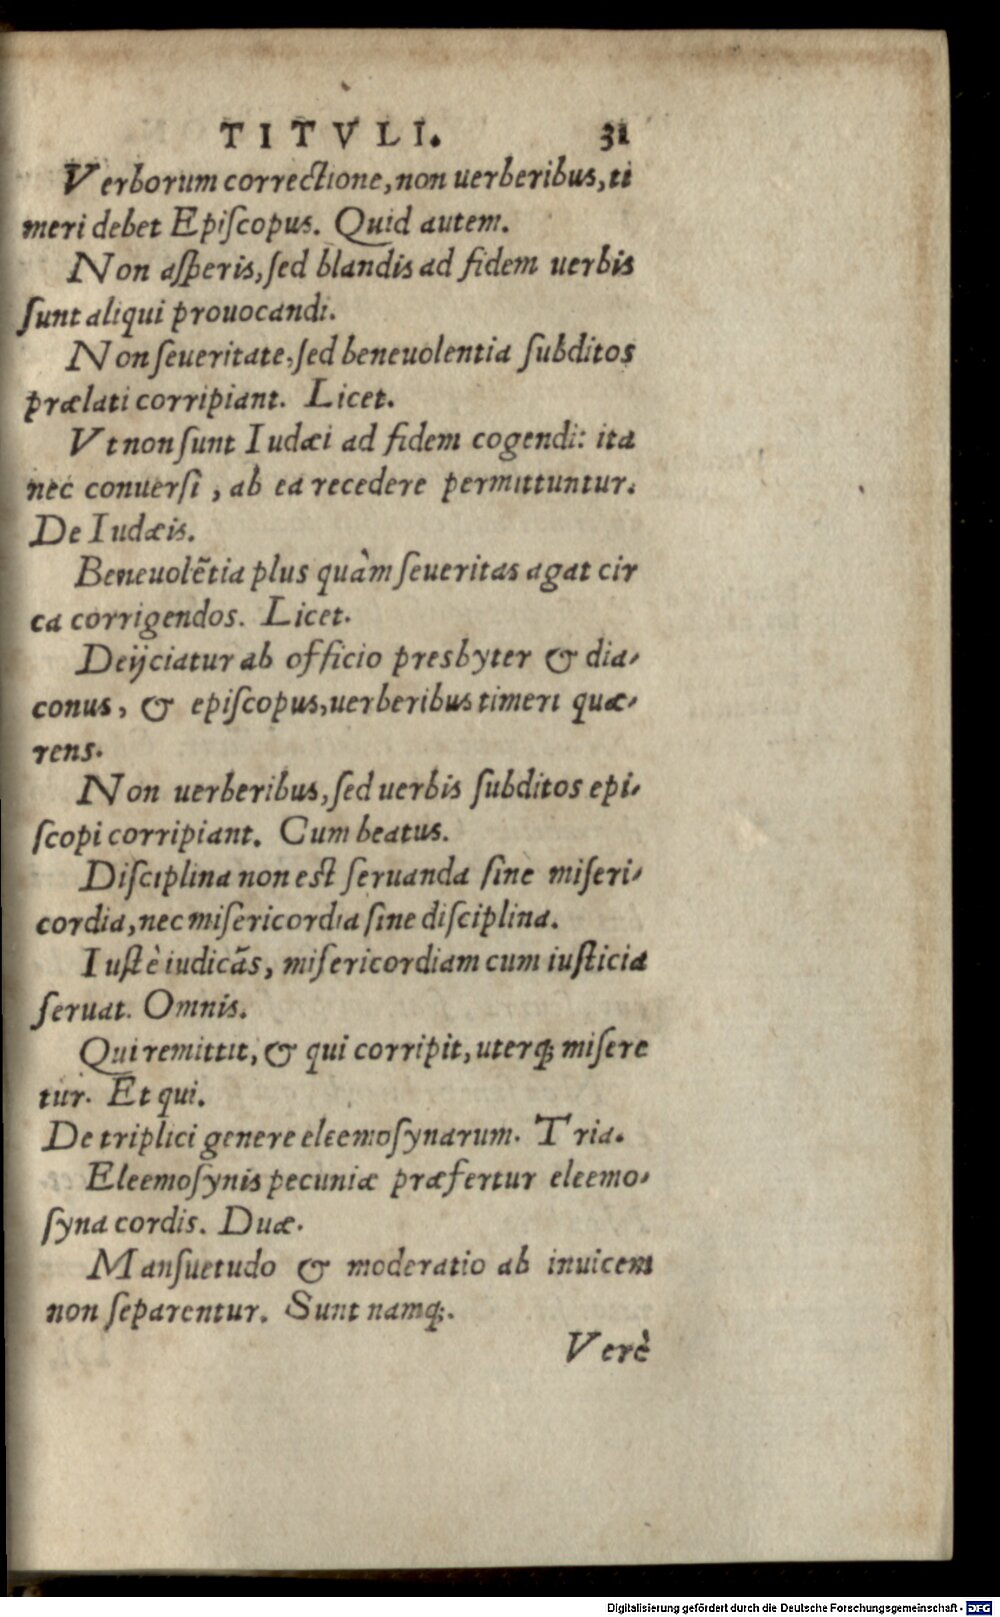 TITVLI. 31
Verborum correctione, non uerberibus, ti
meri debet Epiſcopus. Quid autem.
Non aſperis, ſed blandis ad fidem uerbis
ſunt aliqui prouocandi.
Non ſeueritate, ſed beneuolentia ſubditos
prælati corripiant. Licet.
Vt non ſunt Iudæi ad fidem cogendi: ita
nec conuerſi, ab ea recedere permittuntur.
De Iudæis.
Beneuolẽtia plus quàm ſeueritas agat cir
ca corrigendos. Licet.
Deijciatur ab officio presbyter & dia-
conus, & epiſcopus, uerberibus timeri quæ-
rens.
Non uerberibus, ſed uerbis ſubditos epi-
ſcopi corripiant. Cum beatus.
Diſciplina non est ſeruanda ſine miſeri-
cordia, nec miſericordia ſine diſciplina.
Iuſtè iudicãs, miſericordiam cum iuſticia
ſeruat. Omnis.
Qui remittit, & qui corripit, uterq; miſere
tur. Et qui.
De triplici genere eleemoſynarum. Tria.
Eleemoſynis pecuniæ præfertur eleemo-
ſyna cordis. Duæ.
Manſuetudo & moderatio ab inuicem
non ſeparentur. Sunt namq;.
Verè
Digitalisierung gefördert durch die Deutsche Forschungsgemeinschaft - DFG